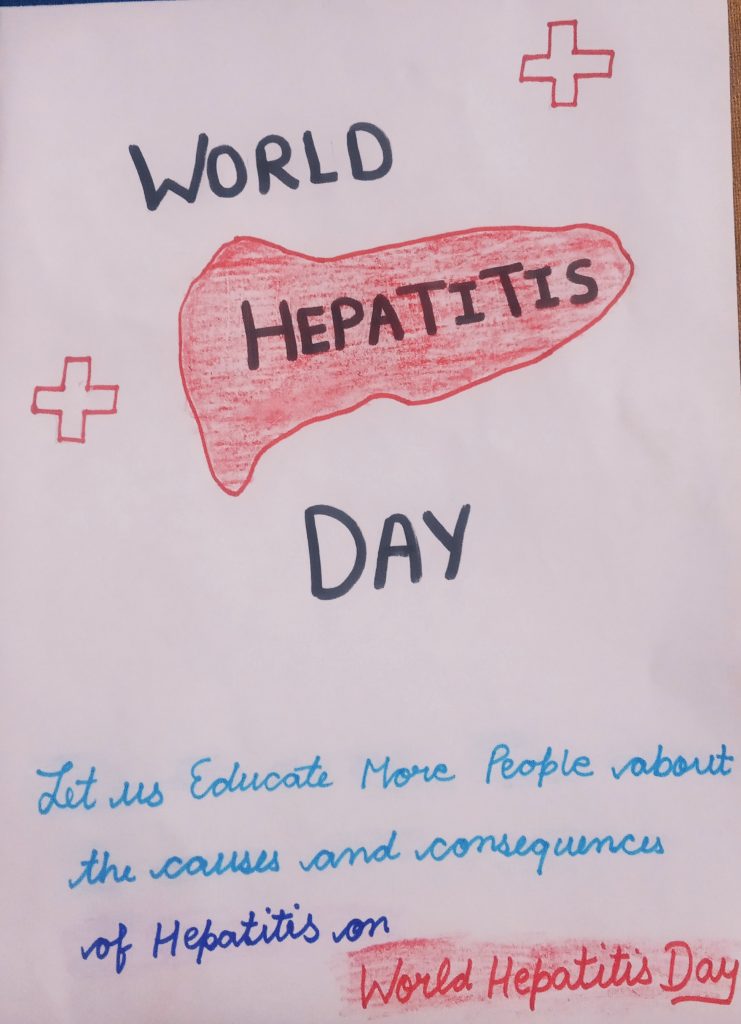 WORLD
HEPATITIS
DAY
Let us Educate More People about
the causes and consequences
of Hepatitis on
World Hepatitis Day